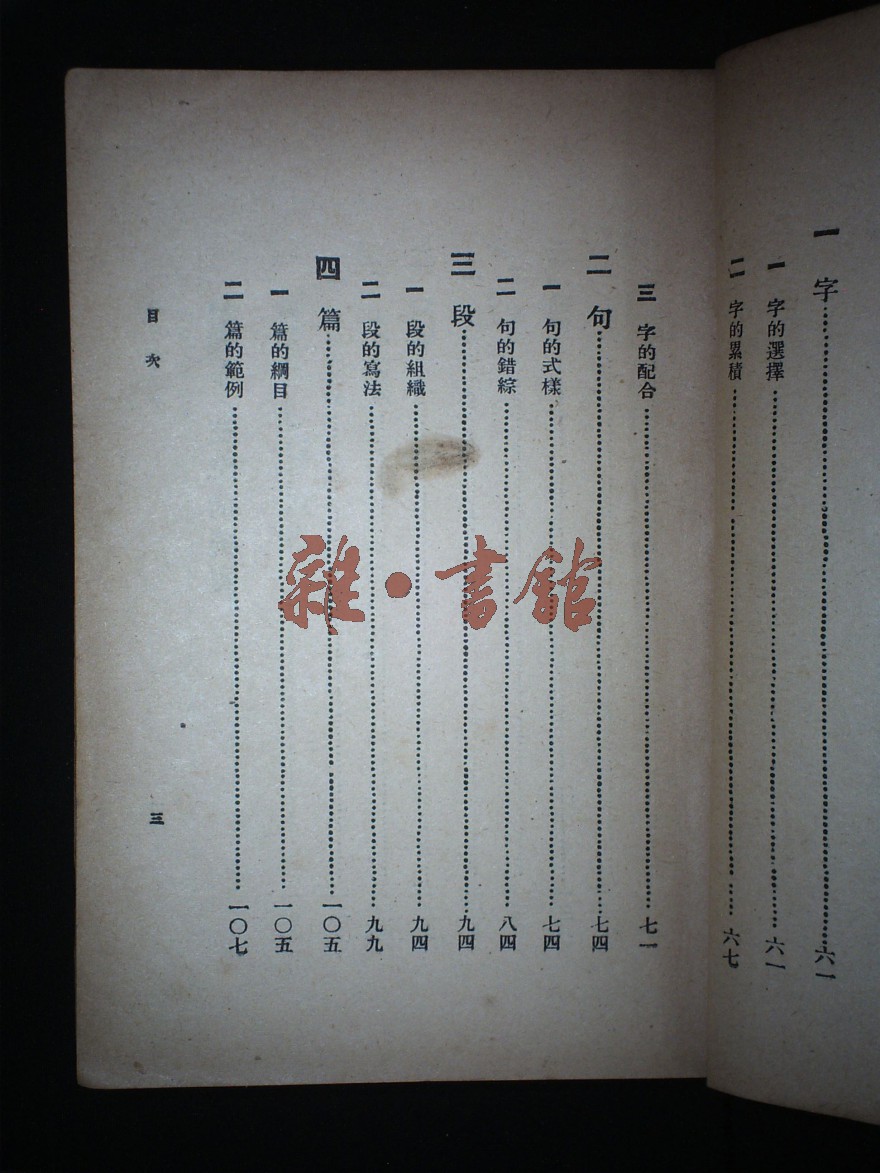 一 字……六一
一 字的選擇……六一
二 字的累積……六七
三 字的配合……七一
二 句……七四
一 句的式樣……七四
二 句的錯綜……八四
三 段……九四
一 段的組織……九四
二 段的寫法……九九
四 篇……一〇五
一 篇的綱目……一〇五
二 篇的範例……一〇七
目次
三
雜·書館